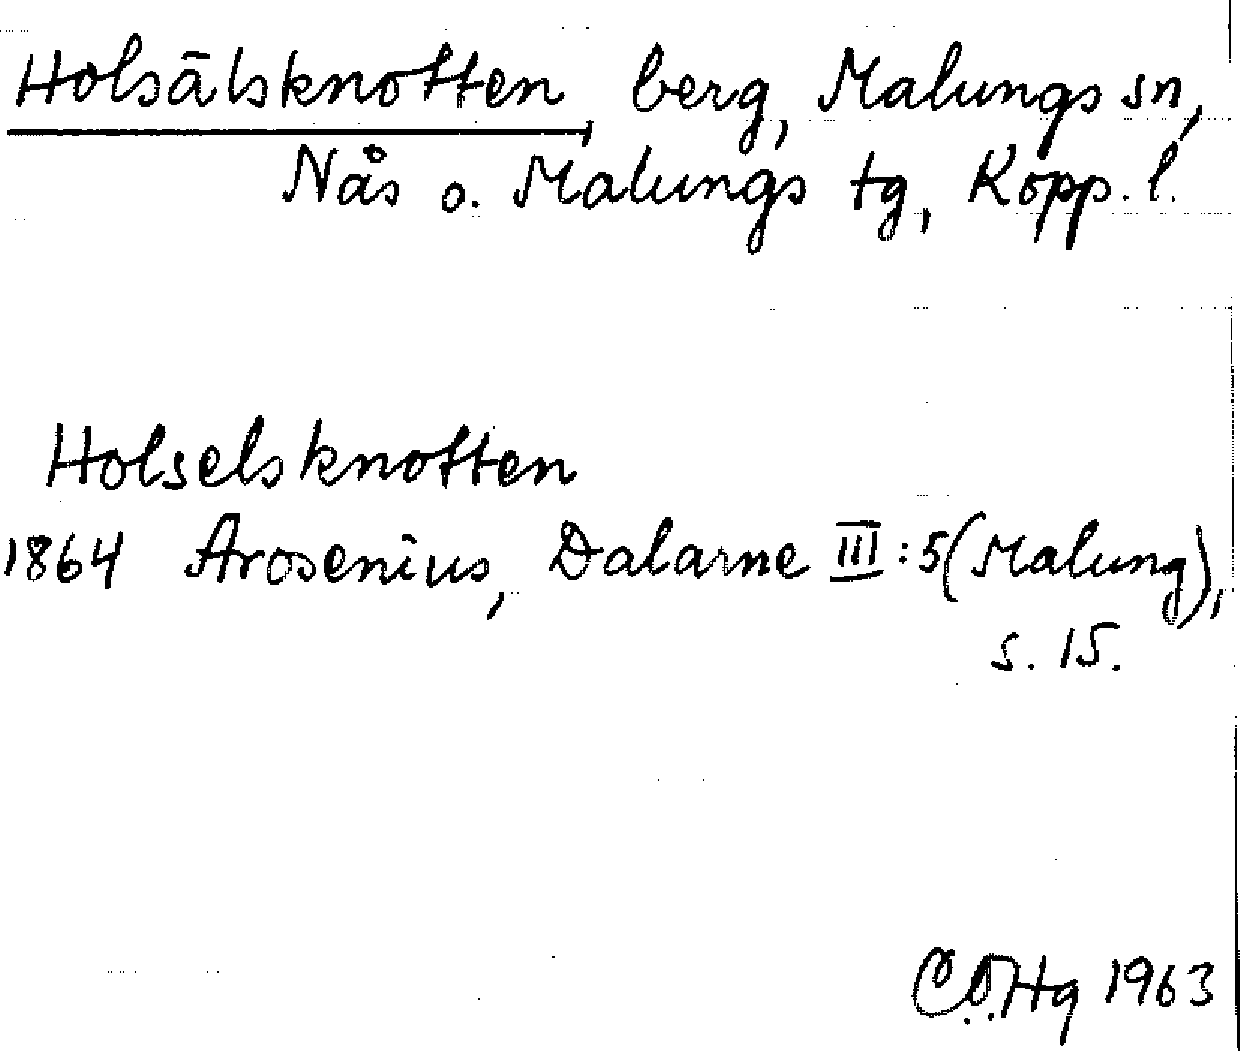 Holsälsknotten, berg, Malungs sn,
Nås o. Malungs tg, Kopp. l.
Holselsknotten
1864 Arosenius, Dalarne III:5 (Malung),
s. 15.
C.O.Hg 1963